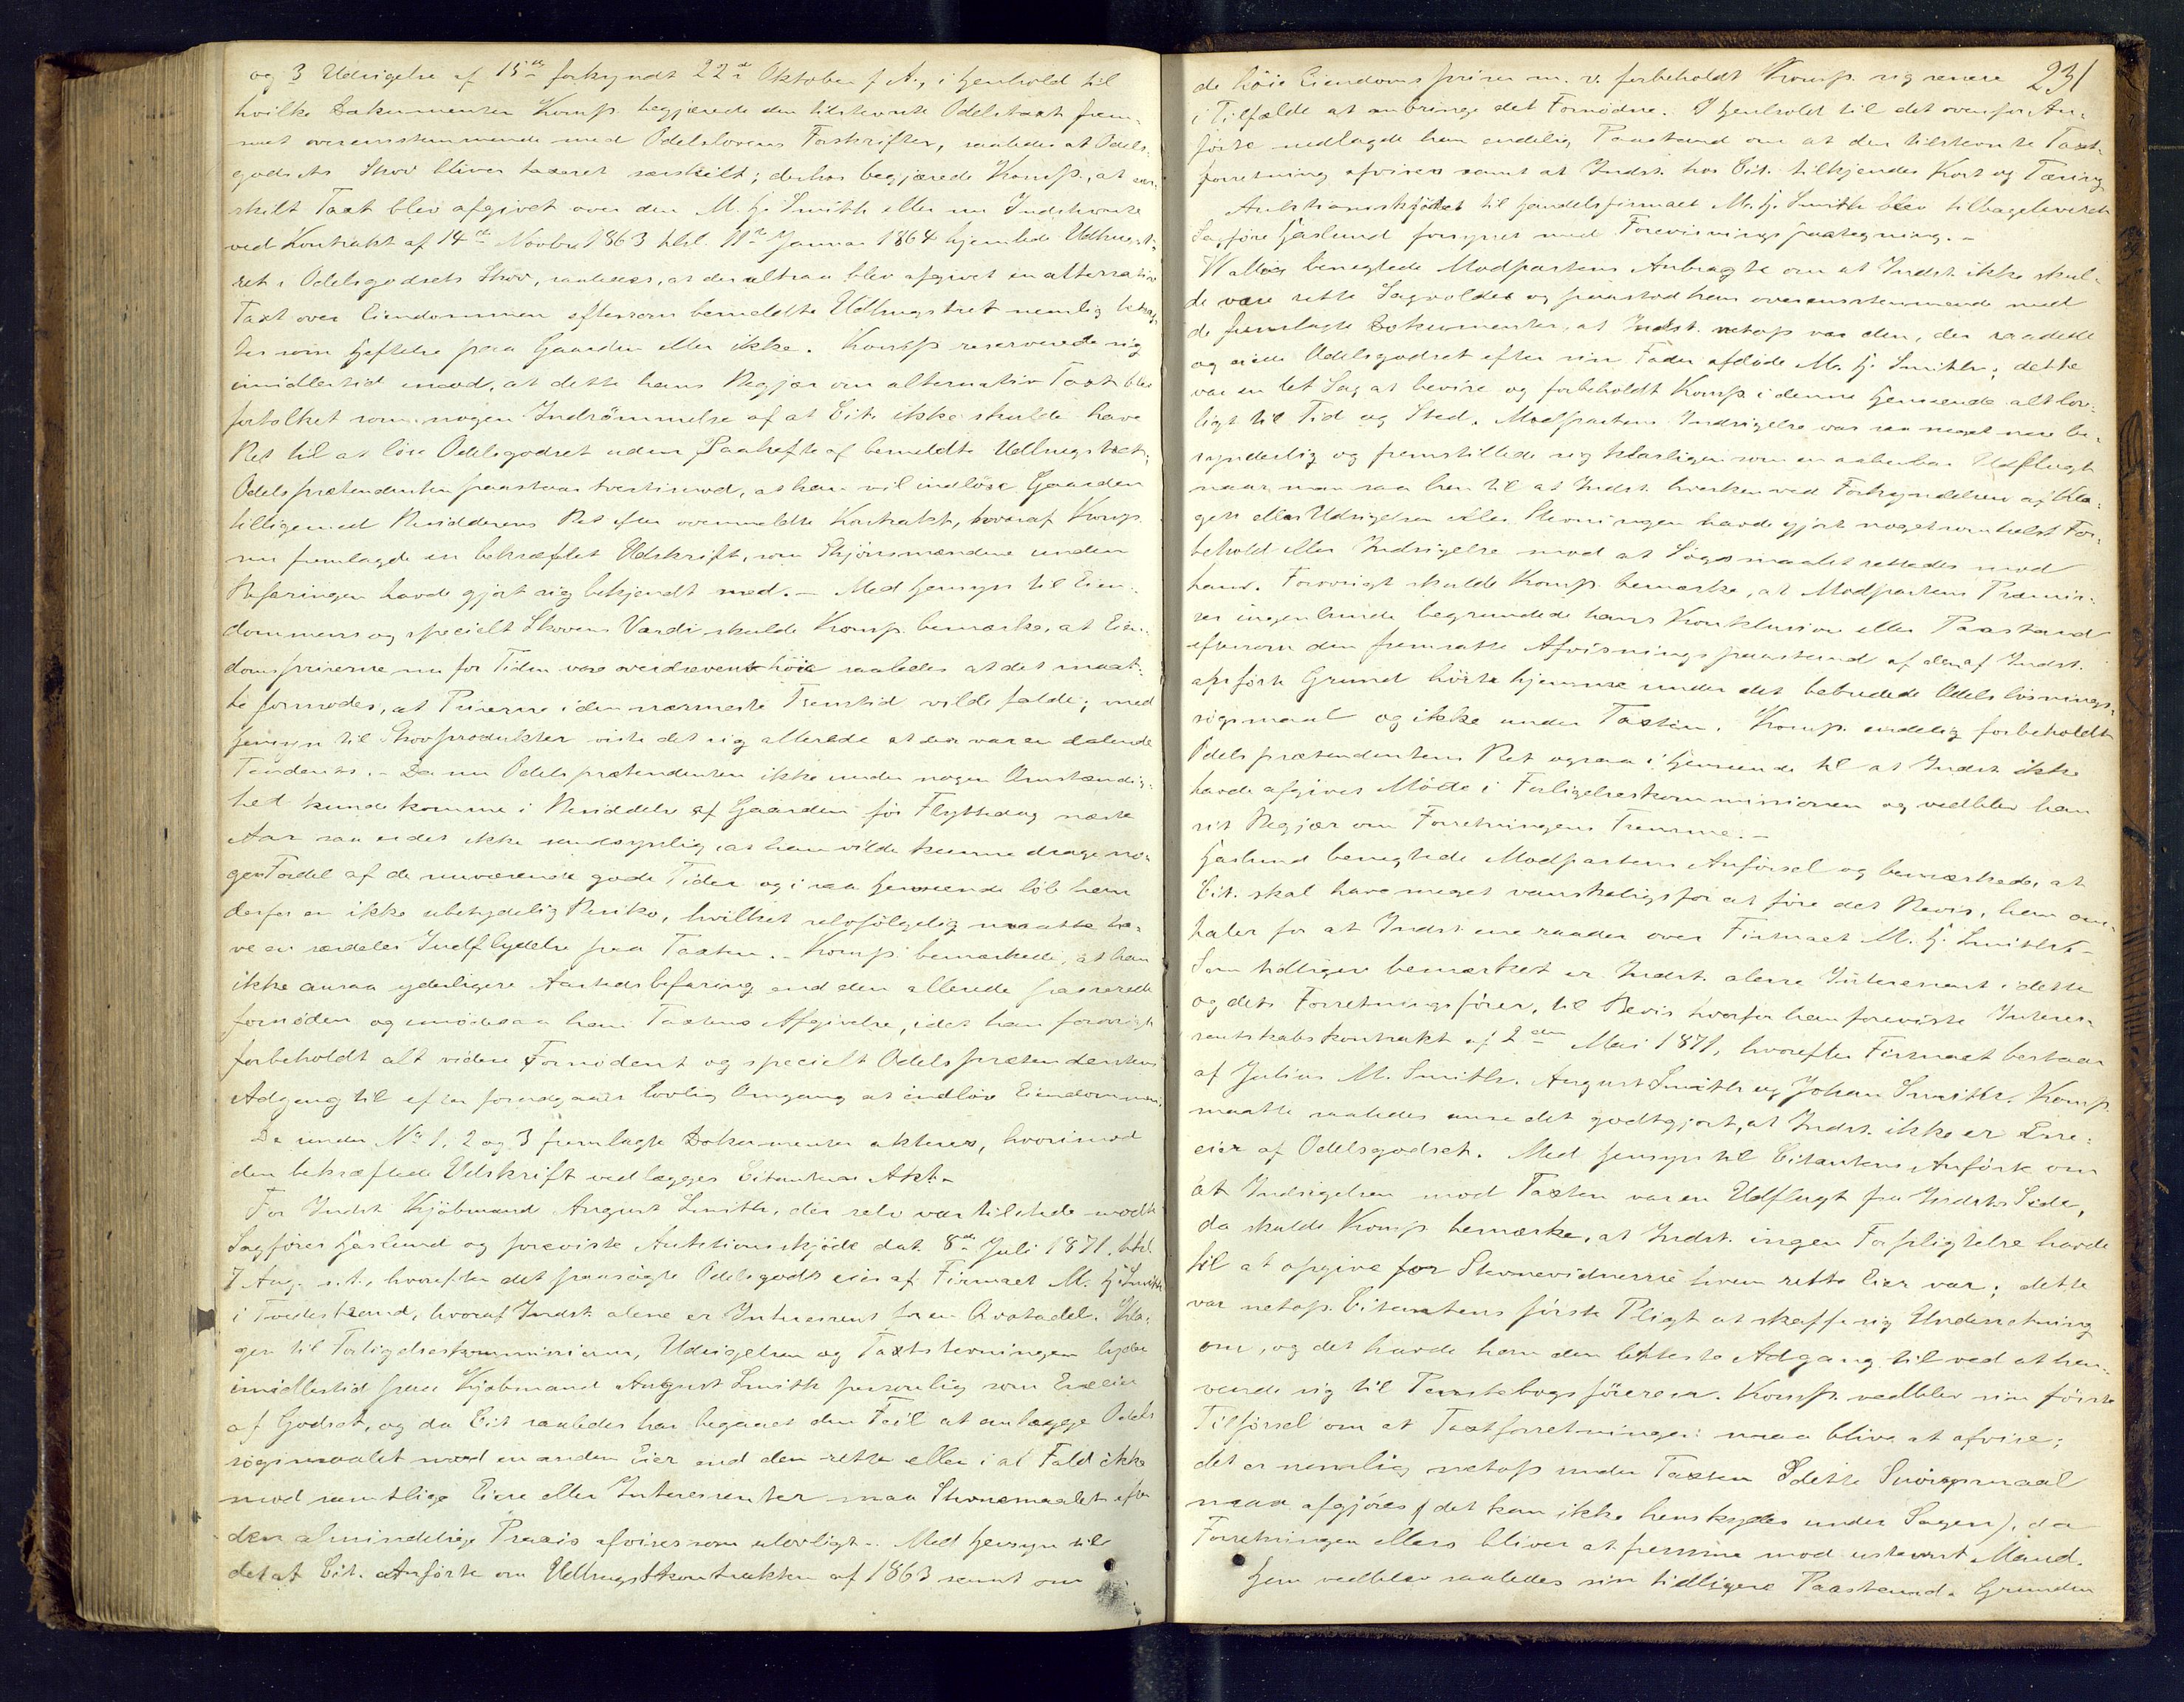 og 3 Udsigelse af 15de forkyndt 22de Oktober f. A., i Henhold til
hvilke Dokumenter Komp. begjærede den tilstevnte Odelstaxt frem-
met overensstemmende med Odelslovens Forskrifter, saaledes at Odels-
godsets Skov bliver taxeret særskilt; derhos begjærede Komp., at sær-
skilt Taxt blev afgivet over den M. H. Smith eller nu Indstevnte
ved Kontrakt af 14de Novbr 1863 thl. 11te Januar 1864 hjemlede Udhugst-
ret i Odelsgodsets Skov, saaledes, at der altsaa blev afgivet en alternativ
Taxt over Eiendommen eftersom bemeldte Udhugstret nemlig betrag-
tes som Heftelse paa Gaarden eller ikke. Komp. reserverede sig
imidlertid imod, at dette hans Begjær om alternativ Taxt blev
fortolket som nogen Indrömmelse af at Cit. ikke skulde have
Ret til at löse Odelsgodset uden Paahefte af bemeldte Udhugstret;
Odelsprætendenten paastaar tvertimod, at han vil indlöse Gaarden
tilligemed Besidderens Ret efter ovenmeldte Kontrakt, hvoraf Komp.
nu fremlagde en bekræftet Udskrift, som Skjönsmændene under
Befaringen havde gjort sig bekjendt med. – Med Hensyn til Eien-
dommens og specielt Skovens Værdi skulde Komp. bemærke, at Eien-
domspriserne nu for Tiden vare overdrevent höie saaledes at det maat-
te formodes, at Priserne i den nærmeste Fremtid vilde falde; med
Hensyn til Skovprodukter viste det sig allerede at der var en dalende
Tendents. – Da nu Odelsprætendenten ikke under nogen Omstændig-
het kunde komme i Besiddelse af Gaarden för Flyttedag næste
Aar saa er det ikke sandsynlig, at han vilde kunne drage no-
gen Fordel af de nuværende gode Tider og i saa Henseende löb han
derfor en ikke ubetydelig Risiko, hvilket selvfölgelig maatte ha-
ve en særdeles Indflydelse paa Taxten. – Komp. bemærkede, at han
ikke ansaa yderligere Aastedsbefaring end den allerede passerede
fornöden og imödesaa han Taxtens Afgivelse, idet han forövrigt
forbeholdt alt videre Fornödent og specielt Odelsprætendentens
Adgang til efter foregaaet lovlig Omgang at indlöse Eiendommen.
De under No 1, 2 og 3 fremlagte Dokumenter akteres, hvorimod
den bekræftede Udskrift vedlægges Citantens Akt. –
For Indst. Kjöbmand August Smith, der selv var tilstede mödte
Sagförer Haslund og foreviste Auktionsskjöde dat. 8de Juli 1871, thl.
7 Aug. s. A., hvorefter det paasögte Odelsgods eies af Firmaet M. H. Smith
i Tvedestrand, hvoraf Indst. alene er Interessent for en Qvotadel. Kla-
gen til Forligelseskommissionen, Udsigelsen og Taxtstevningen lyder
imidlertid paa Kjöbmand August Smith personlig som Eneeier
af Godset, og da Cit. saaledes har begaaet den Feil at anlægge Odels-
sögsmaalet mod en anden Eier end den rette eller i al Fald ikke
mod samtlige Eiere eller Interessenter maa Stevnemaalet efter
den almindelige Praxis afvises som ulovligt. – Med Hensyn til
det af Cit. Anförte om Udhugstkontrakten af 1863 samt om
231
de höie Eiendomspriser m. v. forbeholdt Komp. sig senere
i Tilfælde at anbringe det Fornödne. I Henhold til det ovenfor An-
förte nedlagde han endelig Paastand om at den tilstevnte Taxt-
forretning afvises samt at Indst. hos Cit. tilkjendes Kost og Tæring.
Auktionsskjödet til Handelsfirmaet M. H. Smith blev tilbageleveret
Sagförer Haslund forsynet med Forevisningspaategning. –
Walløe benegtede Modpartens Anbragte om at Indst. ikke skul-
de være rette Sagvolder og paastod han overensstemmende med
de fremlagte Dokumenter, at Indst. netop var den, der raadede
og eiede Odelsgodset efter sin Fader afdöde M. H. Smith; dette
var en let Sag at bevise og forbeholdt Komp. i denne Henseende alt lov-
ligt til Tid og Sted. Modpartens Indsigelse var saa meget mere be-
synderlig og fremstillede sig klarligen som en aabenbar Udflugt
naar man saa hen til at Indst. hverken ved Forkyndelsen af Kla-
gen eller Udsigelsen eller Stevningen havde gjort nogetsomhelst For-
behold eller Indsigelse mod at Sögsmaalet rettedes mod
ham. Forövrigt skulde Komp. bemærke, at Modpartens Præmis-
ser ingenlunde begrundede hans Konklusion eller Paastand
eftersom den fremsatte Afvisningspaastand af den af Indst.
anförte Grund hörte hjemme under det bebudede Odelslösnings-
sögsmaal og ikke under Taxten. Komp. endelig forbeholdt
Odelsprætendentens Ret ogsaa i Henseende til at Indst. ikke
havde afgivet Möde i Forligelseskommissionen og vedblev han
sit Begjær om Forretningens Fremme. –
Haslund benegtede Modpartens Anförsel og bemærkede, at
Cit. skal have meget vanskeligt for at före det Bevis, han om-
taler for at Indst. ene raader over Firmaet M. H. Smith. –
Som tidligere bemærket er Indst. alene Interessent i dette
og dets Forretningsförer, til Bevis hvorfor han foreviste Interes-
sentskabskontrakt af 2den Mai 1871, hvorefter Firmaet bestaar
af Julius M. Smith, August Smith og Johan Smith. Komp.
maatte saaledes anse det godtgjort, at Indst. ikke er Ene-
eier af Odelsgodset. Med Hensyn til Citantens Anförte om
at Indsigelsen mod Taxten var en Udflugt fra Indsts Side,
da skulde Komp. bemærke, at Indst. ingen Forpligtelse havde
til at opgive for Stevnevidnerne hvem rette Eier var; dette
var netop Citantens förste Pligt at skaffe sig Underretning
om, og det havde han den letteste Adgang til ved at hen-
vende sig til Pantebogsföreren. Komp. vedblev sin förste
Tilförsel om at Taxtforretningen maa blive at afvise;
det er nemlig netop under Taxten dette Spörgsmaal
maa afgjöres (det kan ikke henskydes under Sagen), da
Forretningen ellers bliver at fremme mod ustevnt Mand.
Han vedblev saaledes sin tidligere Paastand. Grunden